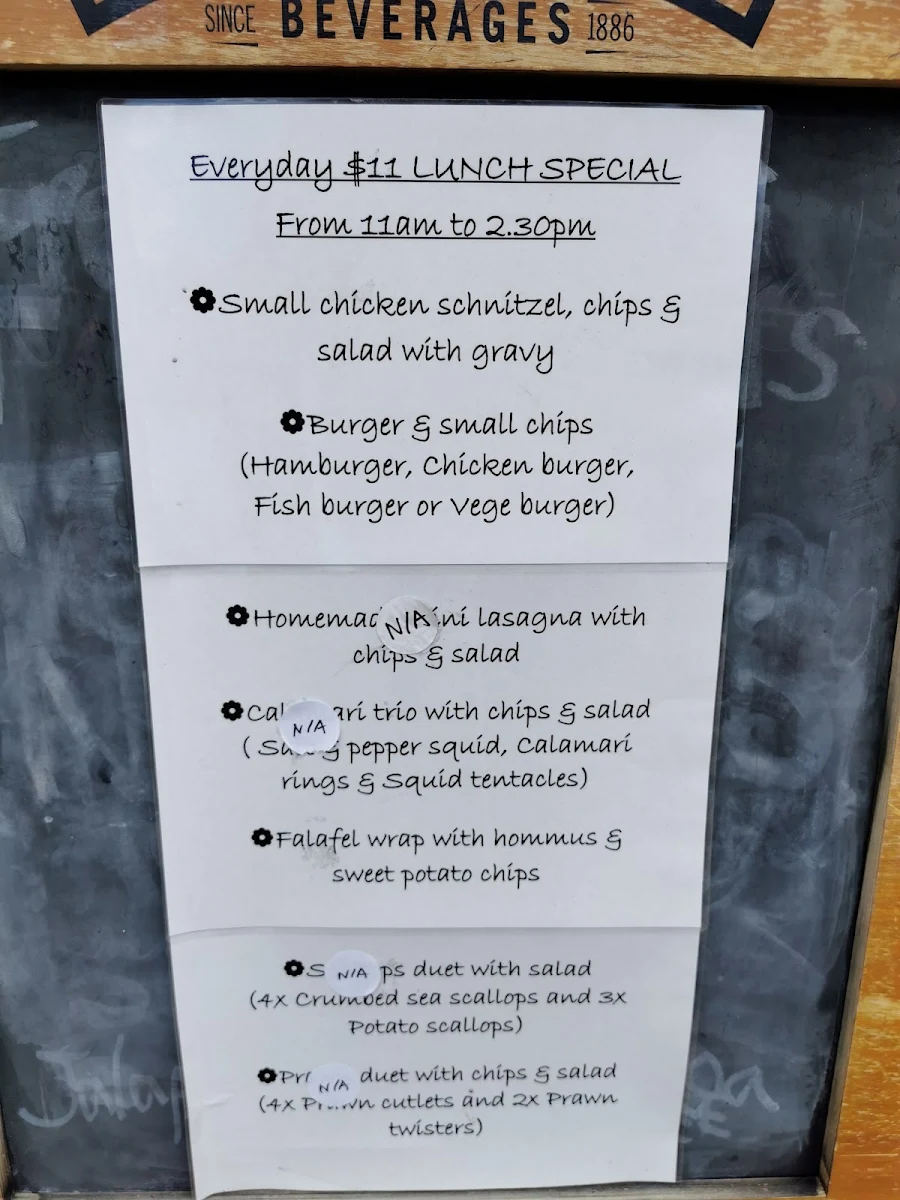 SINCE BEVERAGES 1886
Everyday $11 LUNCH SPECIAL
From 11am to 2.30pm
Small chicken schnitzel, chips &
salad with gravy
Burger & small chips
(Hamburger, Chicken burger,
Fish burger or Vege burger)
N/A lasagna with
chips & salad
N/A trio with chips & salad
& pepper squid, Calamari
rings & Squid tentacles)
Falafel wrap with hommus &
sweet potato chips
N/A duet with salad
(4x Crumbed sea scallops and 3x
Potato scallops)
N/A duet with chips & salad
(4x Prawn cutlets and 2x Prawn
twisters)